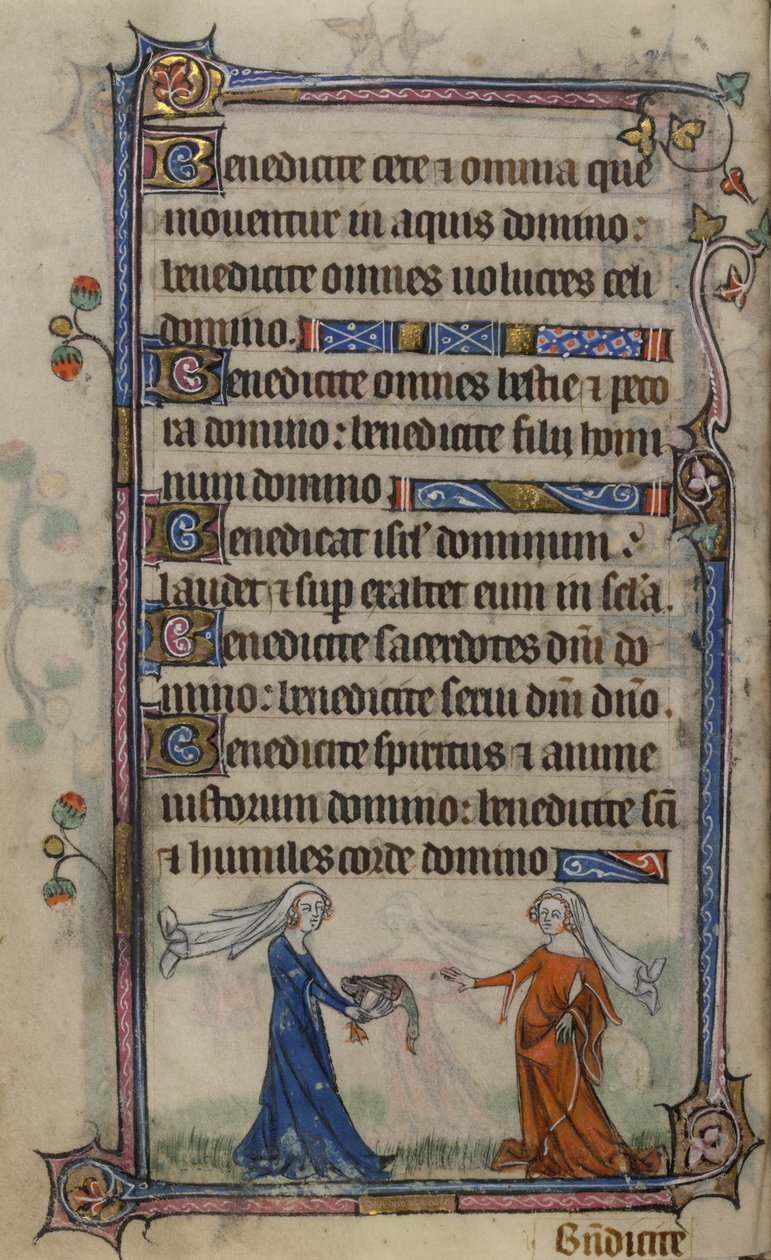 Benedicite cete ⁊ omnia que
mouentur in aquis domino:
benedicite omnes uolucres celi
domino.
Benedicite omnes bestie ⁊ peco
ra domino: benedicite filij homi
num domino
Benedicat isrl̄ dominum:
laudet ⁊ sup exaltet eum in scl̄a.
Benedicite sacerdotes dn̄i do
mino: benedicite serui dn̄i dn̄o.
Benedicite spiritus ⁊ anime
iustorum domino: benedicite sc̄i
⁊ humiles corde domino
Bn̄dicite